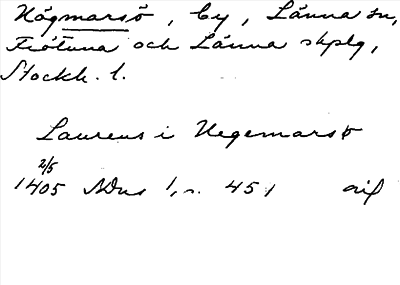 Högmarsö, by, Länna sn,
Frötuna och Länna skplg,
Stockh. l.
Laurens i Hegemarsø
2/5
1405 NDns 1, s. 451 avs